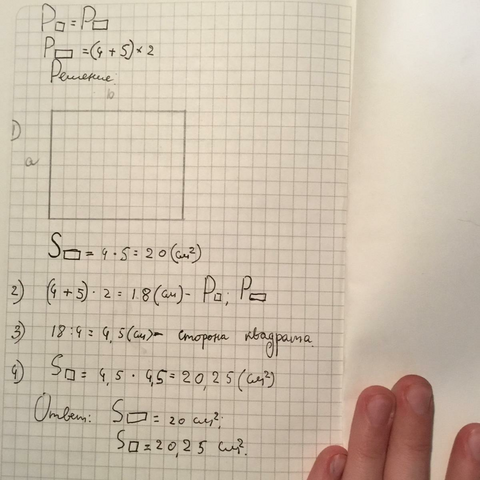 P□ = P▭
P▭ = (4 + 5) × 2
Решение
b
1)
a
S▭ = 4 · 5 = 20 (см²)
2) (4 + 5) · 2 = 18 (см) - P□; P▭
3) 18 : 4 = 4,5 (см) - сторона квадрата.
4) S□ = 4,5 · 4,5 = 20,25 (см²)
Ответ: S▭ = 20 см²;
S□ = 20,25 см².